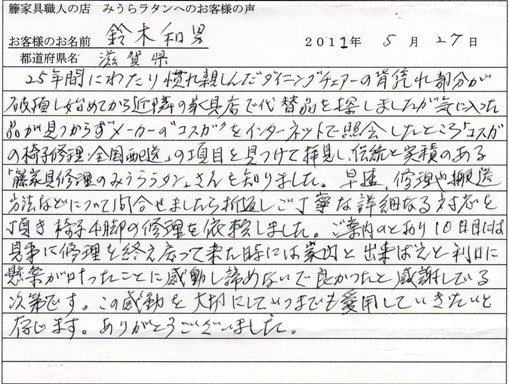 籐家具職人の店　みうらラタンへのお客様の声
お客様のお名前　鈴木和男　2011年5月27日
都道府県名　滋賀県
25年間にわたり慣れ親しんだダイニングチェアーの背凭れ部分が
破損し始めてから近隣の家具店で代替品を探しましたが気に入った
品が見つからず メーカーの"コスガ"をインターネットで照会したところ「コスガ
の椅子修理・全国配送」の項目を見つけて拝見し、伝統と実積のある
「籐家具修理のみうらラタン」さんを知りました。早速、修理や搬送
方法などについて問合せましたら折返しご丁寧な詳細なる対応を
頂き椅子4脚の修理を依頼しました。ご案内のとおり10日目には
見事に修理を終え戻って来た時には家内と出来ばえと利口に
懸案が片付いたことに感動し諦めないで良かったと感謝している
次第です。この感動を大切にしていつまでも愛用していきたいと
存じます。ありがとうございました。